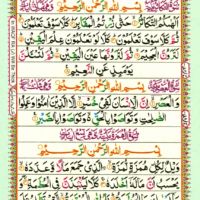 بِسْمِ اللهِ الرَّحْمٰنِ الرَّحِيْمِ
اَلْهٰىكُمُ التَّكَاثُرُ حَتّٰى زُرْتُمُ الْمَقَابِرَ كَلَّا سَوْفَ تَعْلَمُوْنَ
ثُمَّ كَلَّا سَوْفَ تَعْلَمُوْنَ كَلَّا لَوْ تَعْلَمُوْنَ عِلْمَ الْيَقِيْنِ
لَتَرَوُنَّ الْجَحِيْمَ ثُمَّ لَتَرَوُنَّهَا عَيْنَ الْيَقِيْنِ ثُمَّ لَتُسْئَلُنَّ
يَوْمَئِذٍ عَنِ النَّعِيْمِ
بِسْمِ اللهِ الرَّحْمٰنِ الرَّحِيْمِ
وَالْعَصْرِ اِنَّ الْاِنْسَانَ لَفِيْ خُسْرٍ اِلَّا الَّذِيْنَ اٰمَنُوْا وَعَمِلُوا
الصّٰلِحٰتِ وَتَوَاصَوْا بِالْحَقِّ وَتَوَاصَوْا بِالصَّبْرِ
بِسْمِ اللهِ الرَّحْمٰنِ الرَّحِيْمِ
وَيْلٌ لِّكُلِّ هُمَزَةٍ لُّمَزَةٍ الَّذِيْ جَمَعَ مَالًا وَّعَدَّدَهٗ
يَحْسَبُ اَنَّ مَالَهٗ اَخْلَدَهٗ كَلَّا لَيُنْۢبَذَنَّ فِي الْحُطَمَةِ وَمَا